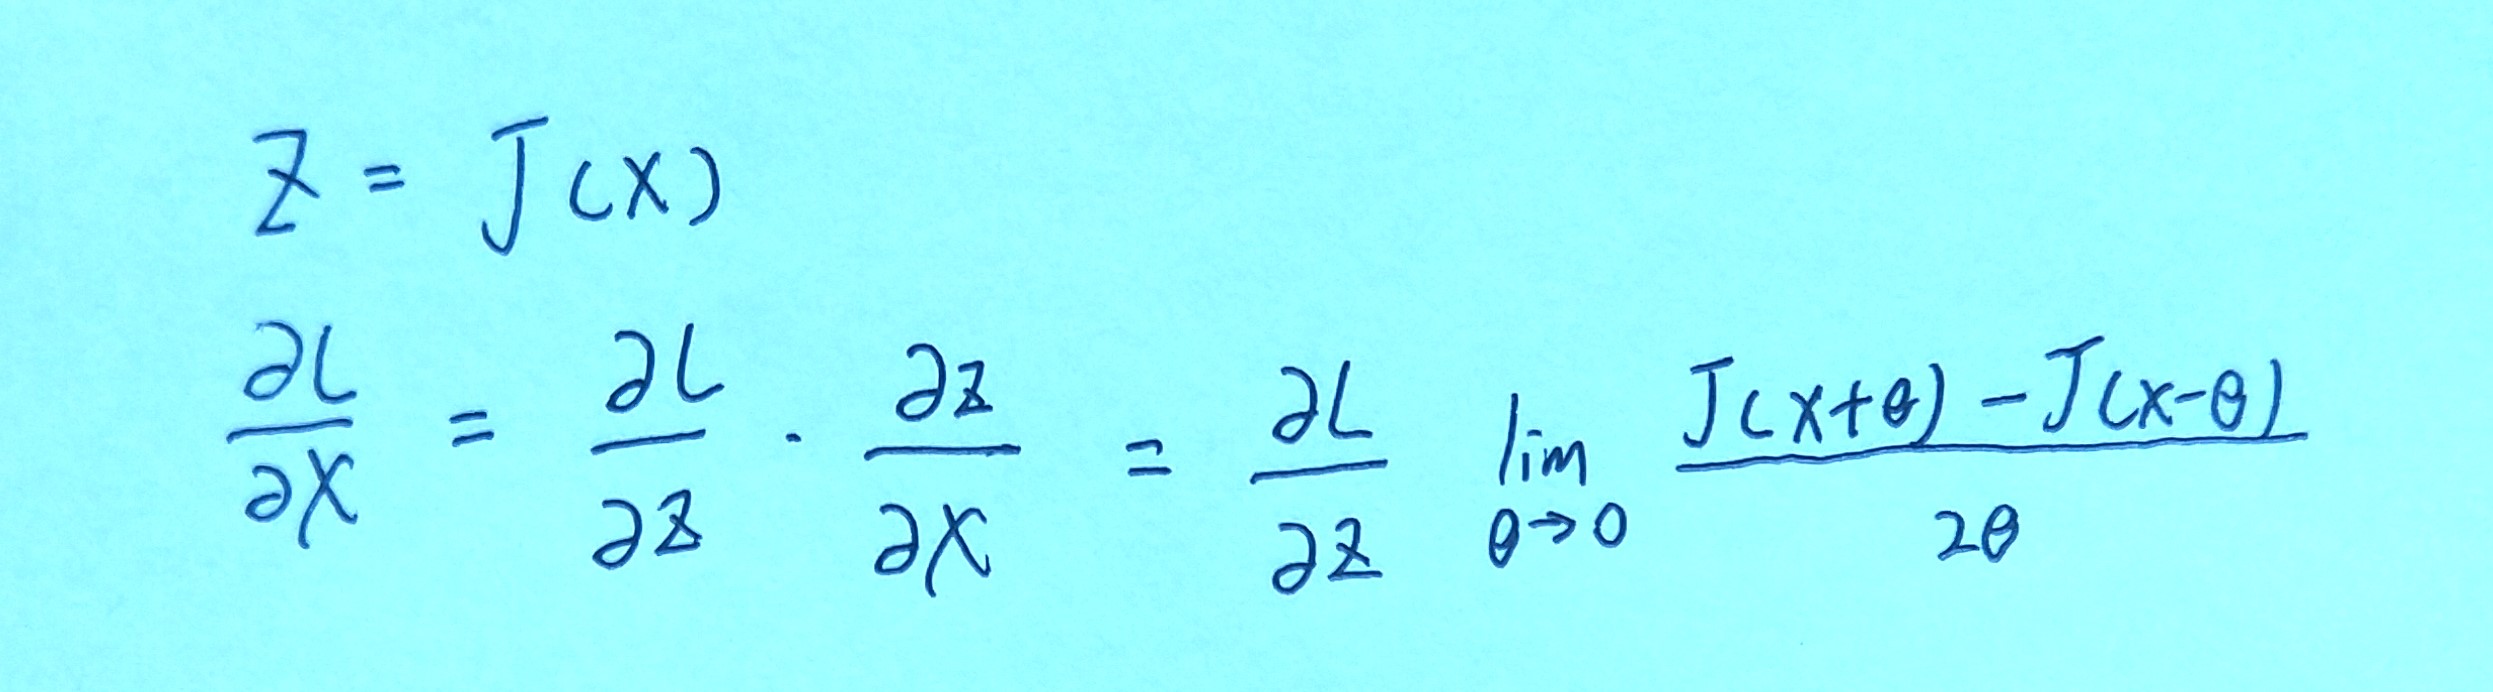 Z = J(X)
∂L/∂X = ∂L/∂z · ∂z/∂X = ∂L/∂z lim θ→0 J(X+θ) - J(X-θ) / 2θ